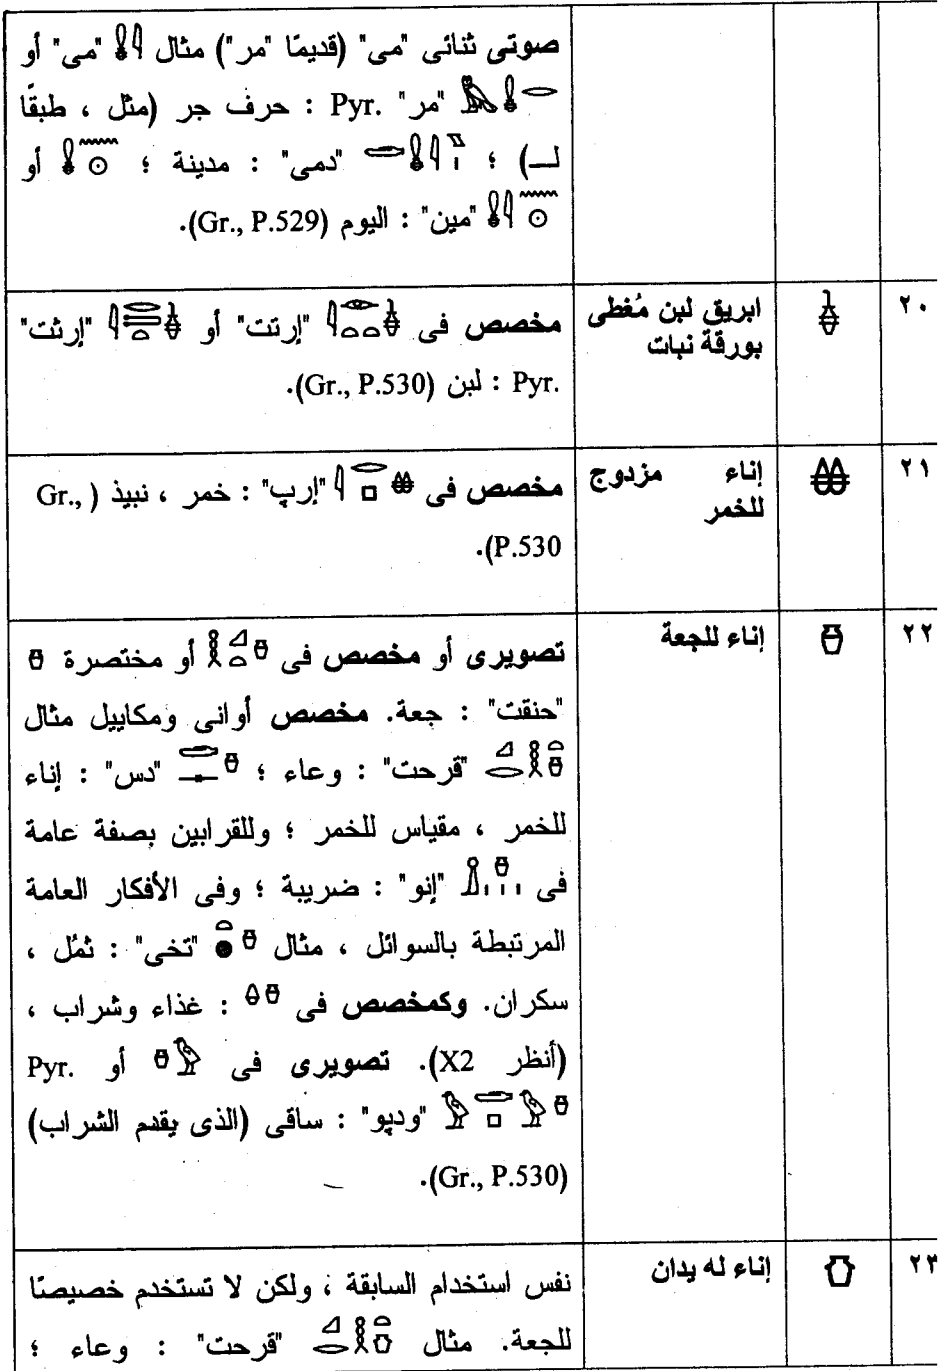 صوتى ثنائى "مى" (قديمًا "مر") مثال 𓇋𓏇 "مى" أو
𓅓𓏇𓂋 "مر" Pyr. : حرف جر (مثل ، طبقًا
لـ) ؛ "دمى" : مدينة ؛ أو
"مين" : اليوم (Gr., P.529).
٢٠
ابريق لبن مُغطى
بورقة نبات
مخصص فى "إرتت" أو "إرثت"
Pyr. : لبن (Gr., P.530).
٢١
إناء مزدوج
للخمر
مخصص فى "إرپ" : خمر ، نبيذ (Gr.,
P.530).
٢٢
إناء للجعة
تصويرى أو مخصص فى أو مختصرة 𓏊
"حنقت" : جعة. مخصص أوانى ومكاييل مثال
"قرحت" : وعاء ؛ "دس" : إناء
للخمر ، مقياس للخمر ؛ وللقرابين بصفة عامة
فى "إنو" : ضريبة ؛ وفى الأفكار العامة
المرتبطة بالسوائل ، مثال "تخى" : ثمُل ،
سكران. وكمخصص فى : غذاء وشراب ،
(أنظر X2). تصويرى فى أو Pyr.
"وديو" : ساقى (الذى يقدم الشراب)
(Gr., P.530).
٢٣
إناء له يدان
نفس استخدام السابقة ، ولكن لا تستخدم خصيصًا
للجعة. مثال "قرحت" : وعاء ؛